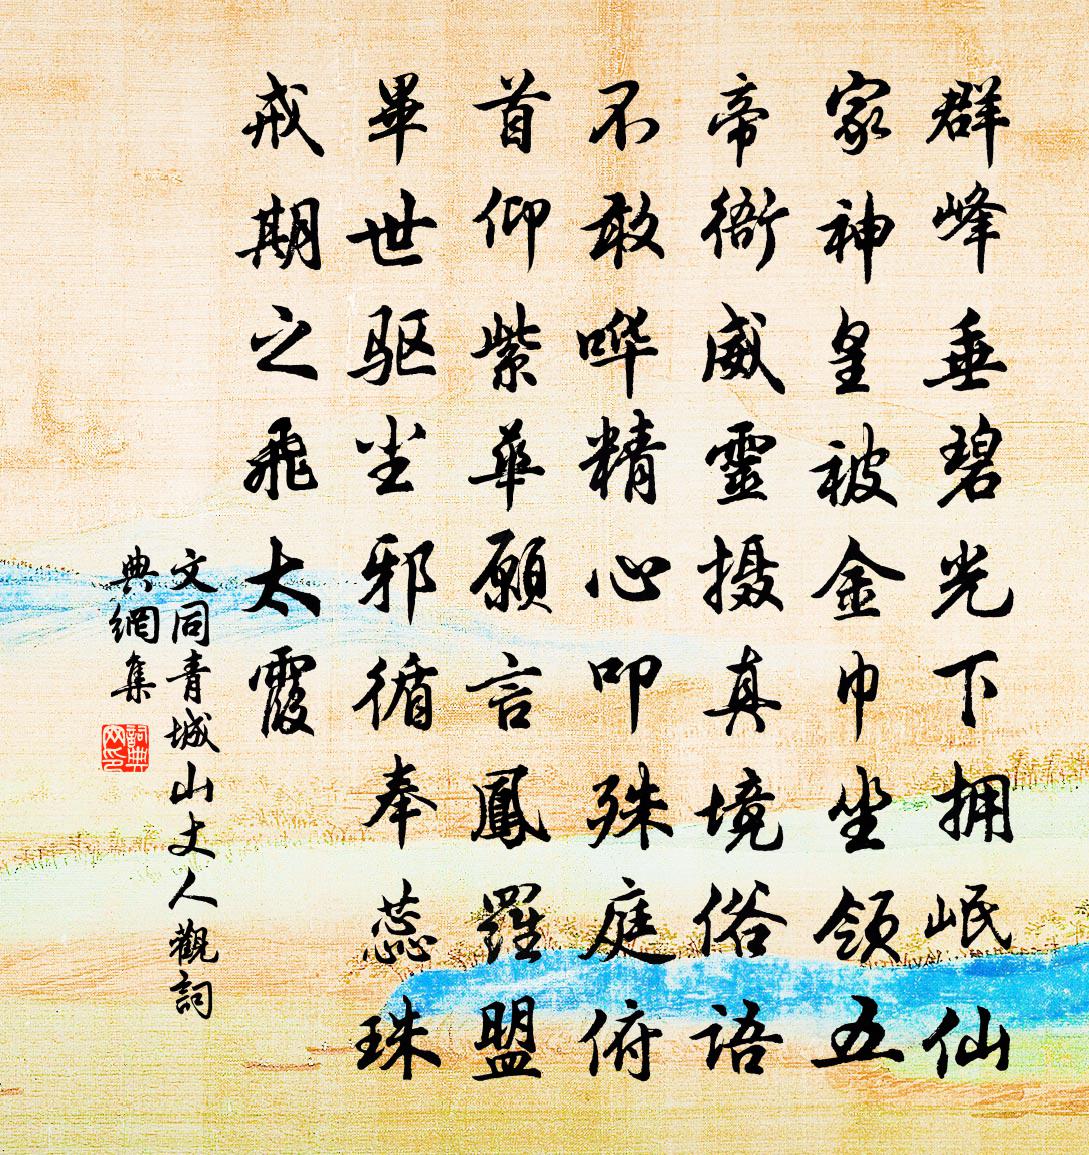 群峰垂碧光下拥岷仙
家神皇被金巾坐领五
帝衙威靈摄真境俗语
不敢哗精心叩殊庭俯
首仰紫華願言鳳羅盟
畢世驱坐邪循奉蕊珠
戒期之飛太霞
文同青城山丈人觀詞
典網集
詞典网印